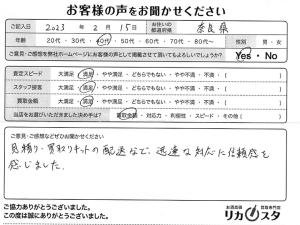 お客様の声をお聞かせください
ご記入日 2023年 2月 15日 お住いの都道府県 奈良県
年齢 20代・30代・40代・50代・60代・70代・80代〜 性別 男・女
ご意見・ご感想を弊社ホームページにお客様の声として掲載させて頂いてもよろしいでしょうか? Yes・No
査定スピード 大満足・満足・どちらでもない・やや不満・不満・( )
スタッフ接客 大満足・満足・どちらでもない・やや不満・不満・( )
買取金額 大満足・満足・どちらでもない・やや不満・不満・( )
当店をお選びいただきました決め手は? 買取金額・対応力・利便性・スピード・その他( )
ご意見・ご感想などぜひお聞かせください。
見積り・買取りキットの配送など、迅速な対応に信頼感を
感じました。
ご協力ありがとうございました。
この度は誠にありがとうございました。
お酒買取 買取専門店
リカスタ